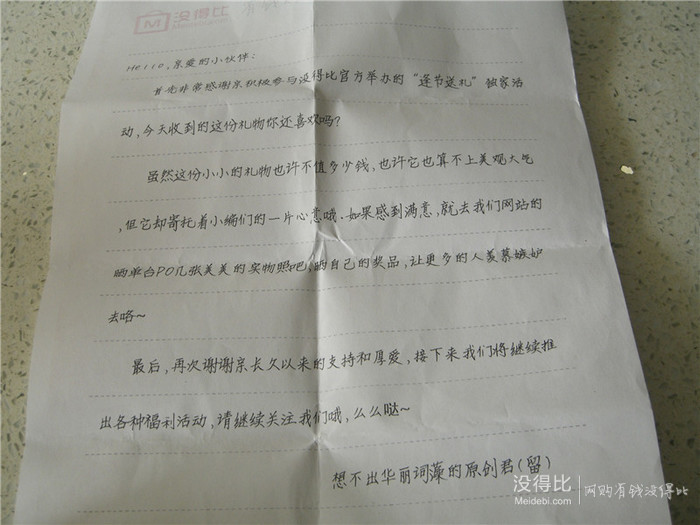 没得比
Hello,亲爱的小伙伴:
首先非常感谢亲积极参与没得比官方举办的“逢节送礼”独家活
动,今天收到的这份礼物你还喜欢吗?
虽然这份小小的礼物也许不值多少钱,也许它也算不上美观大气
,但它却寄托着小编们的一片心意哦.如果感到满意,就去我们网站的
晒单台PO几张美美的实物照吧,晒自己的奖品,让更多的人羡慕嫉妒
去咯~
最后,再次谢谢亲长久以来的支持和厚爱,接下来我们将继续推
出各种福利活动,请继续关注我们哦,么么哒~
想不出华丽词藻的原创君(留)
没得比 网购有钱没得比
Meidebi.com